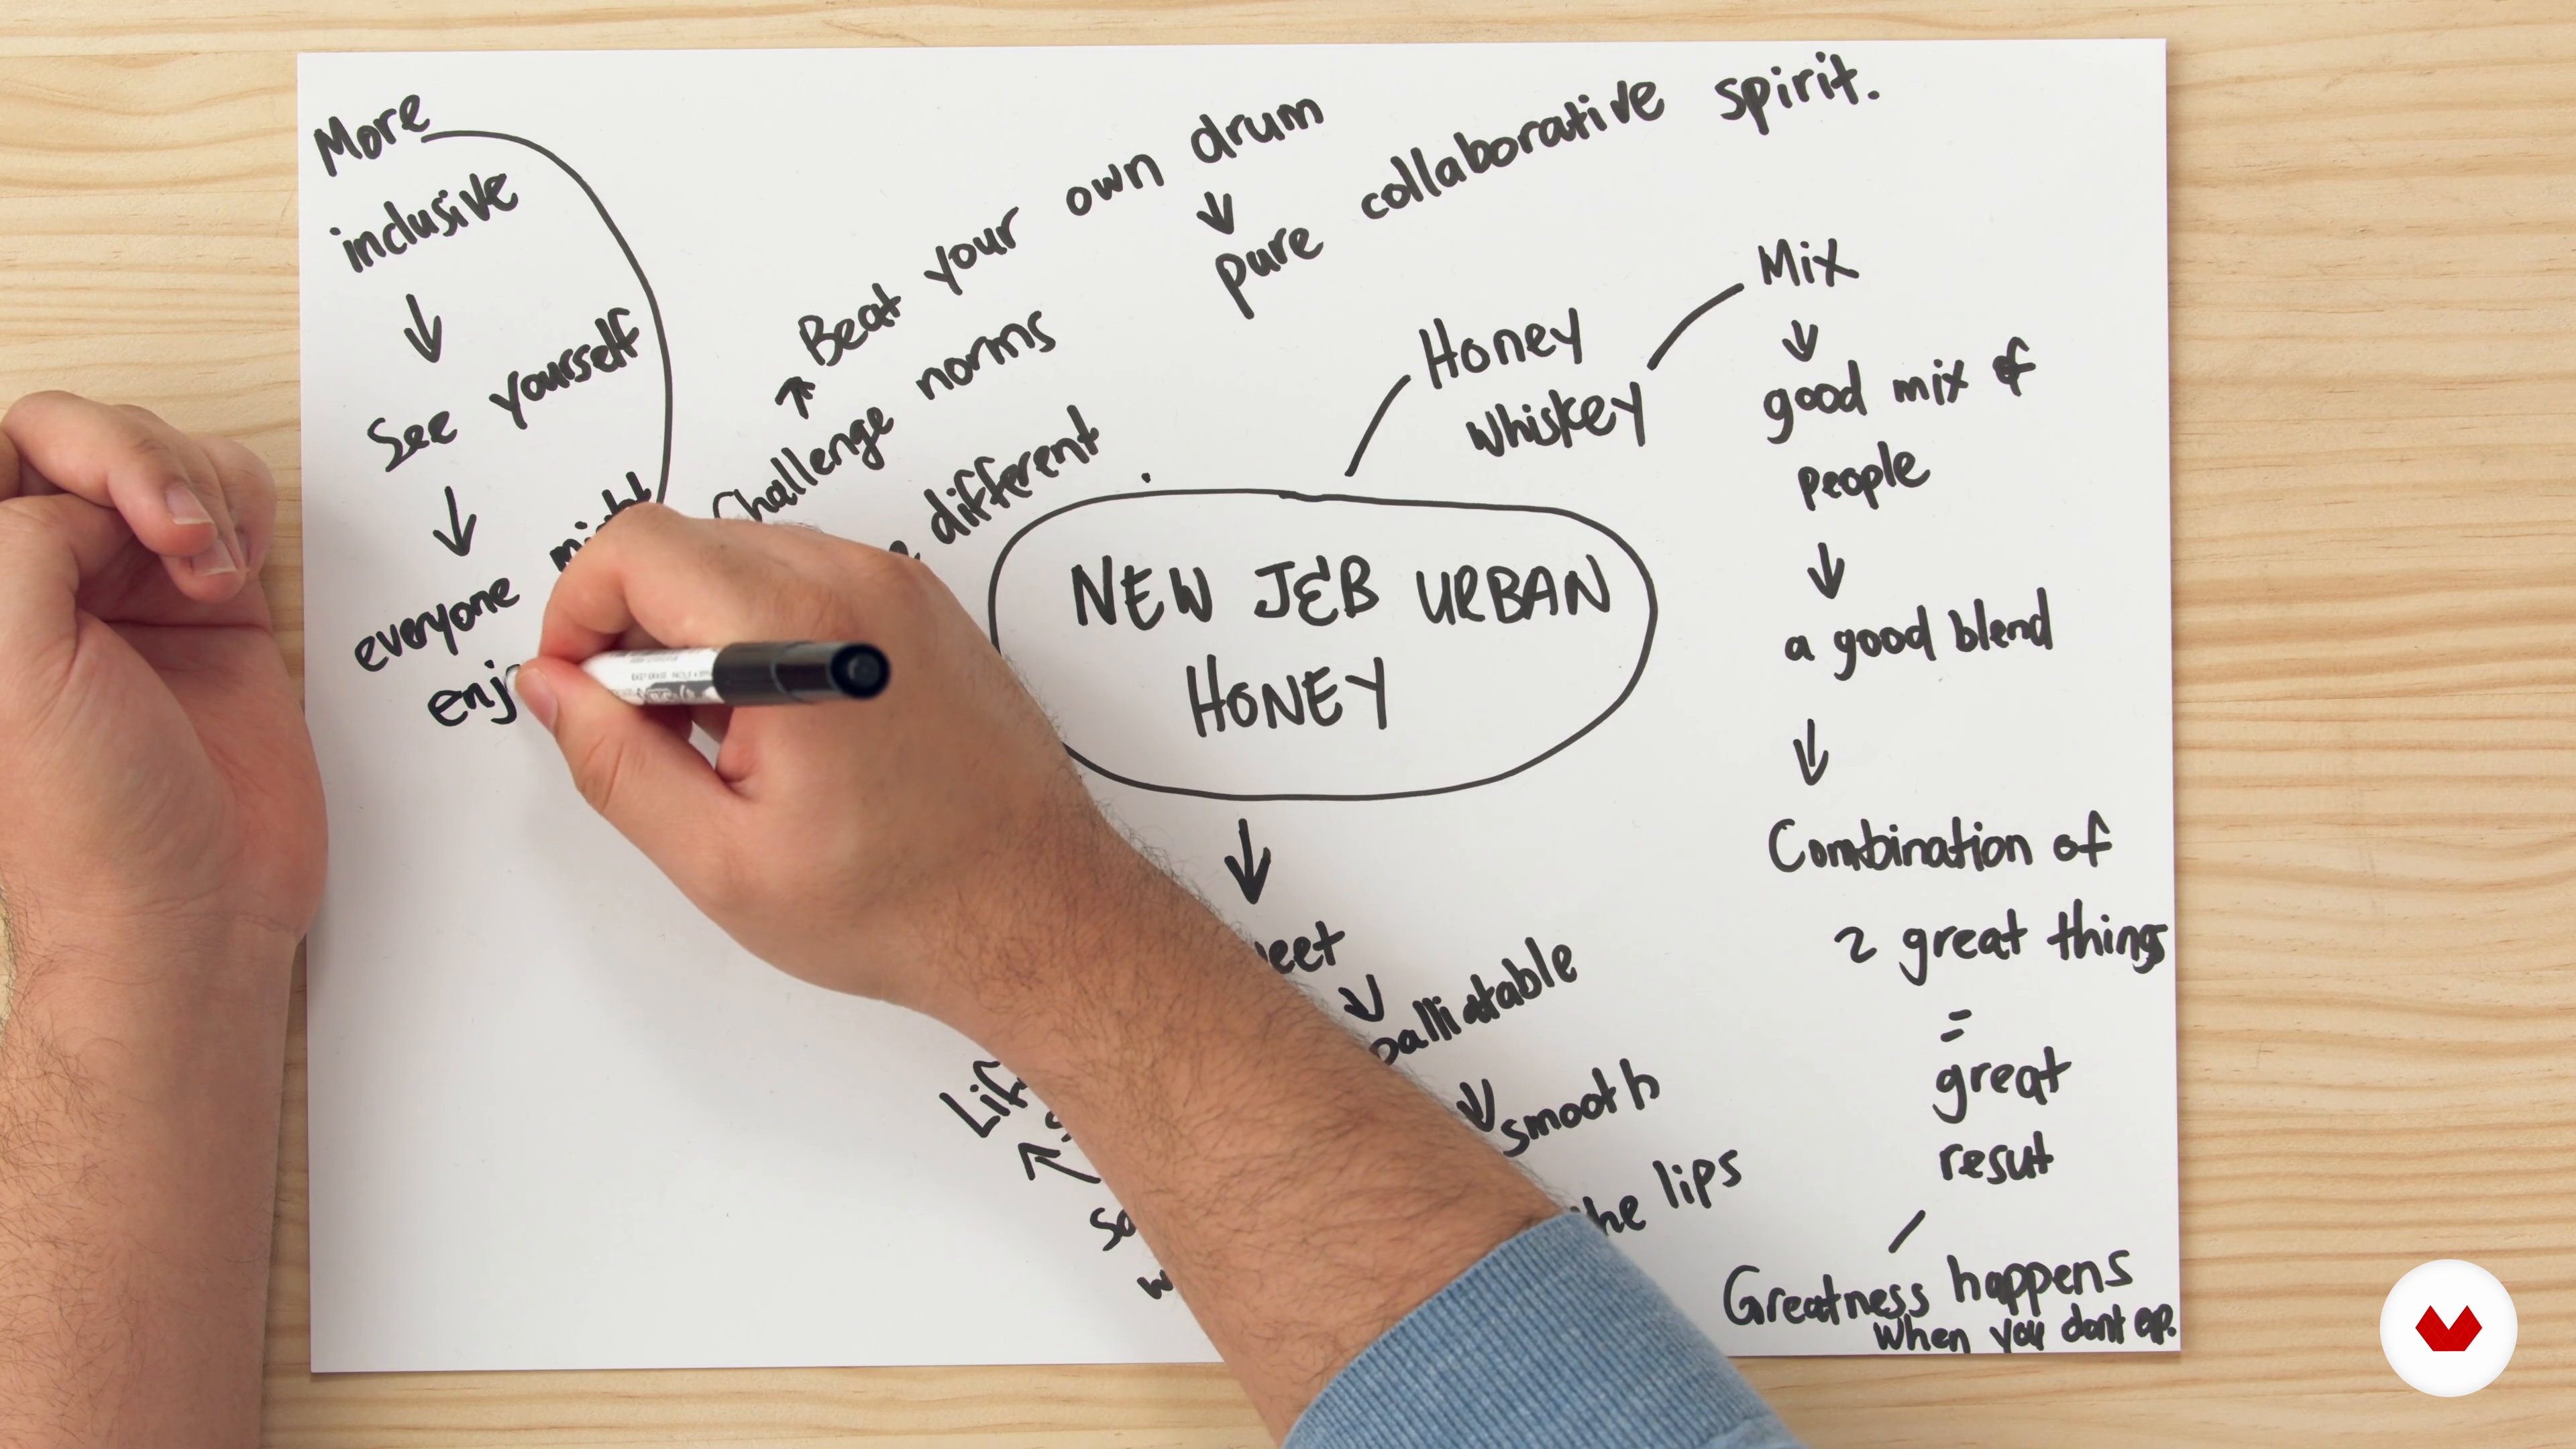 More
inclusive
↓
See yourself
↓
everyone might
enj
Beat your own drum
↓
pure collaborative spirit.
↗
Challenge norms
different
Honey
Whiskey
Mix
↓
good mix of
people
↓
a good blend
↓
Combination of
2 great things
=
great
resut
Greatness happens
when you dont
NEW J&B URBAN
HONEY
↓
↓
palliatable
↓
smooth
the lips